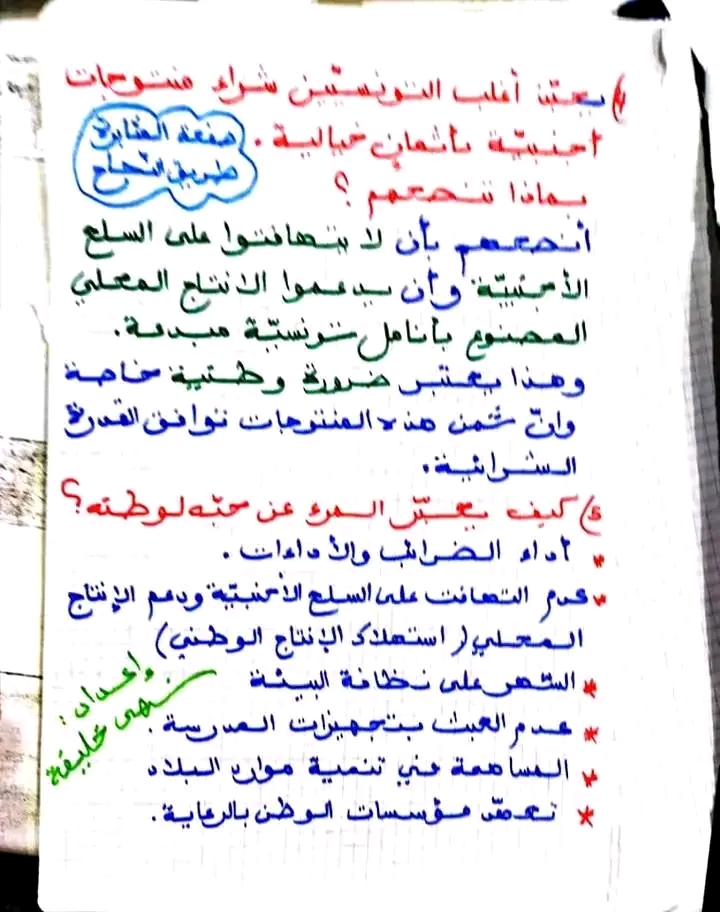 4) يحبّذ أغلب التونسيّين شراء منتوجات
أجنبيّة بأثمان خيالية.
صفحة المثابرة
طريق النّجاح
بماذا تنصحهم؟
أنصحهم بأن لا يتهافتوا على السلع
الأجنبيّة وأن يدعموا الانتاج المحلي
المصنوع بأنامل تونسيّة مبدعة.
وهذا يعتبر ضرورة وطنية خاصة
وانّ ثمن هذه المنتوجات توافق القدرة
الشرائية.
5) كيف يعبّر المرء عن حبّه لوطنه؟
* أداء الضرائب والأداءات.
* عدم التهافت على السلع الأجنبيّة ودعم الإنتاج
المحلي (استهلاك الإنتاج الوطني)
* السّهر على نظافة البيئة
* عدم العبث بتجهيزات المدرسة.
* المساهمة في تنمية موارد البلاد
* تعهّد مؤسسات الوطن بالرعاية.
واعداد:
سهى خليفة